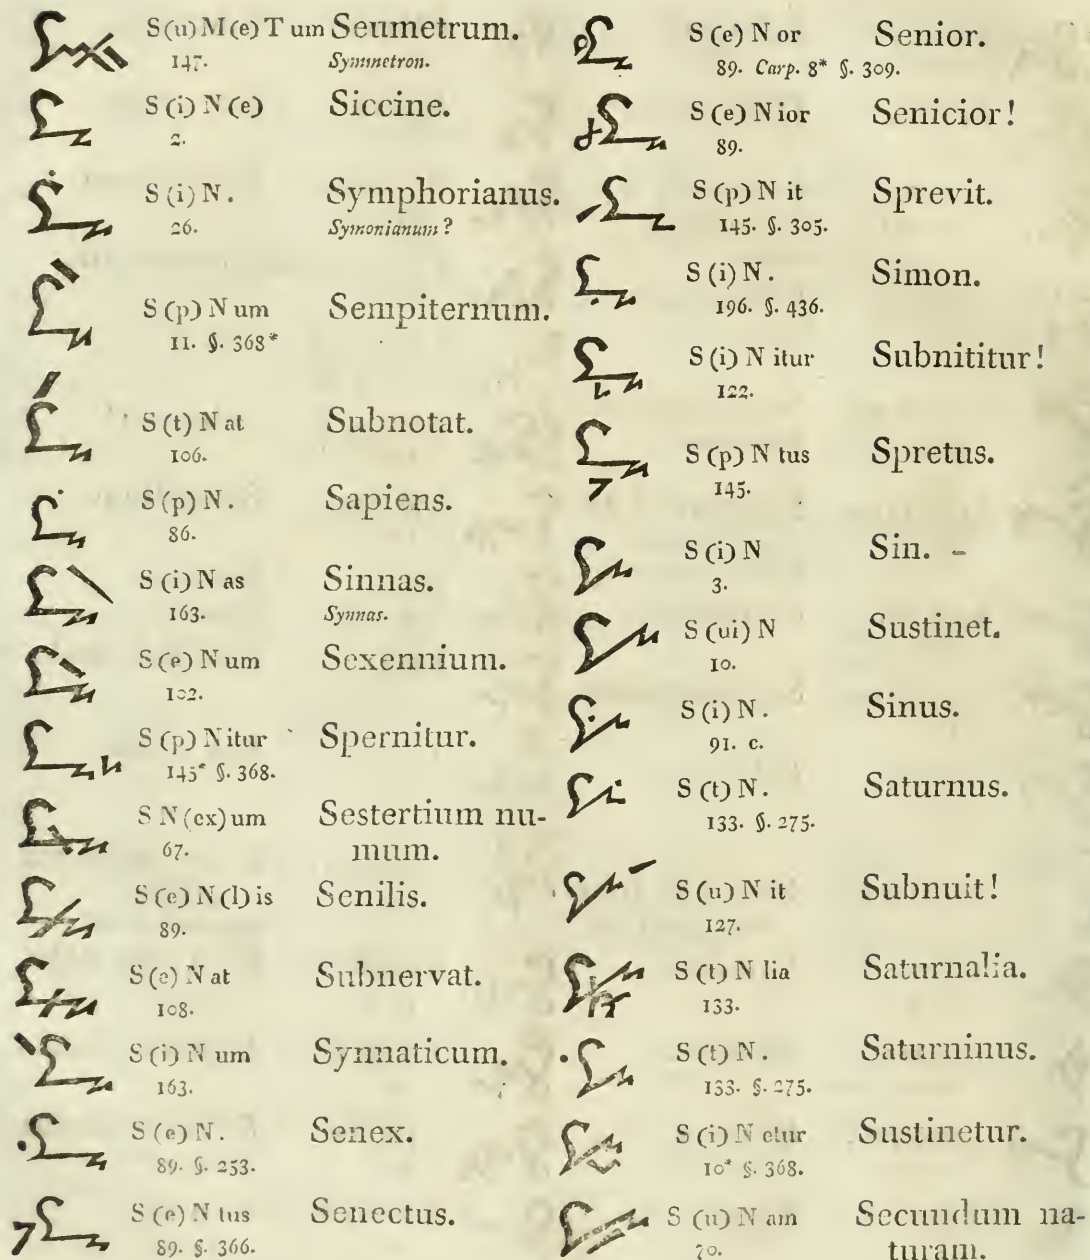 S(u)M(e)Tum Seumetrum.
147. Symmetron.
S(i)N(e) Siccine.
2.
S(i)N. Symphorianus.
26. Symonianum?
S(p)Num Sempiternum.
11. §. 368*
S(t)Nat Subnotat.
106.
S(p)N. Sapiens.
86.
S(i)Nas Sinnas.
163. Synnas.
S(e)Num Sexennium.
102.
S(p)Nitur Spernitur.
145* §. 368.
SN(ex)um Sestertium nu-
67. mum.
S(e)N(l)is Senilis.
89.
S(e)Nat Subnervat.
108.
S(i)Num Synnaticum.
163.
S(e)N. Senex.
89. §. 253.
S(e)Ntus Senectus.
89. §. 366.
S(e)Nor Senior.
89. Carp. 8* §. 309.
S(e)Nior Senicior!
89.
S(p)Nit Sprevit.
145. §. 305.
S(i)N. Simon.
196. §. 436.
S(i)Nitur Subnititur!
122.
S(p)Ntus Spretus.
145.
S(i)N Sin. -
3.
S(ui)N Sustinet.
10.
S(i)N. Sinus.
91. c.
S(t)N. Saturnus.
133. §. 275.
S(u)Nit Subnuit!
127.
S(t)Nlia Saturnalia.
133.
S(t)N. Saturninus.
133. §. 275.
S(i)Netur Sustinetur.
10* §. 368.
S(u)Nam Secundum na-
70. turam.